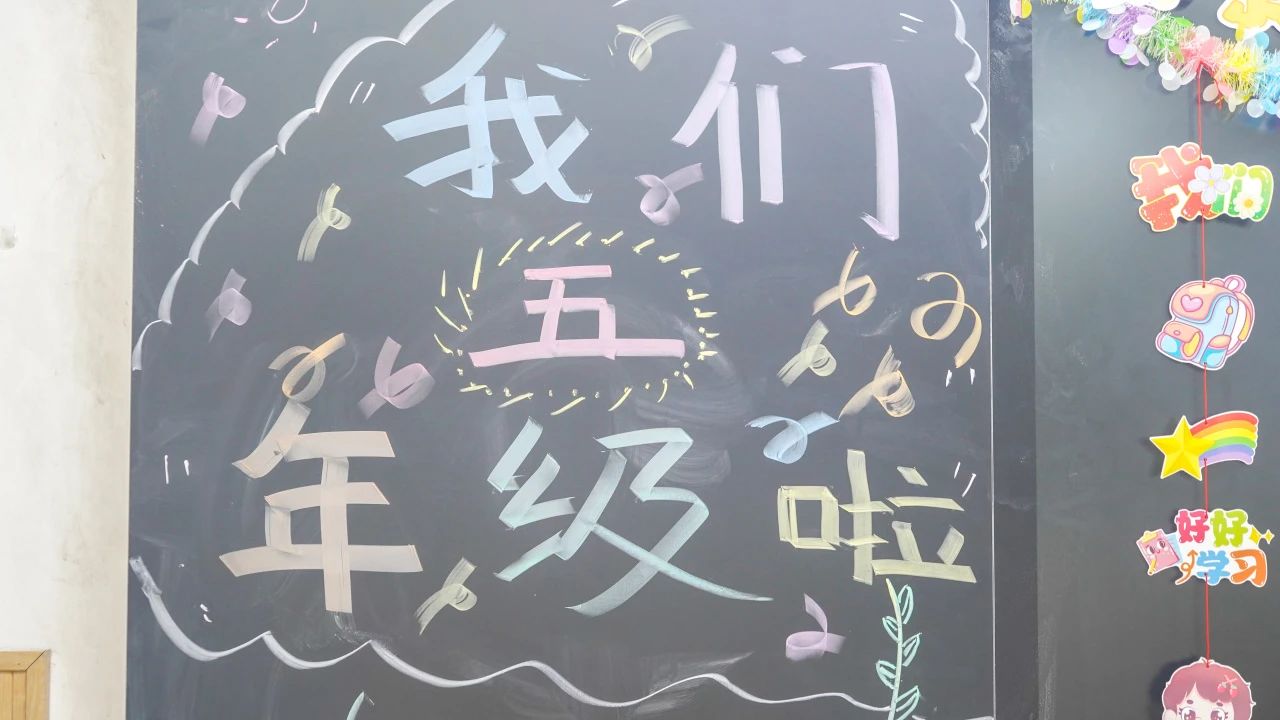 我们
五
年级啦
我们
好好
学习